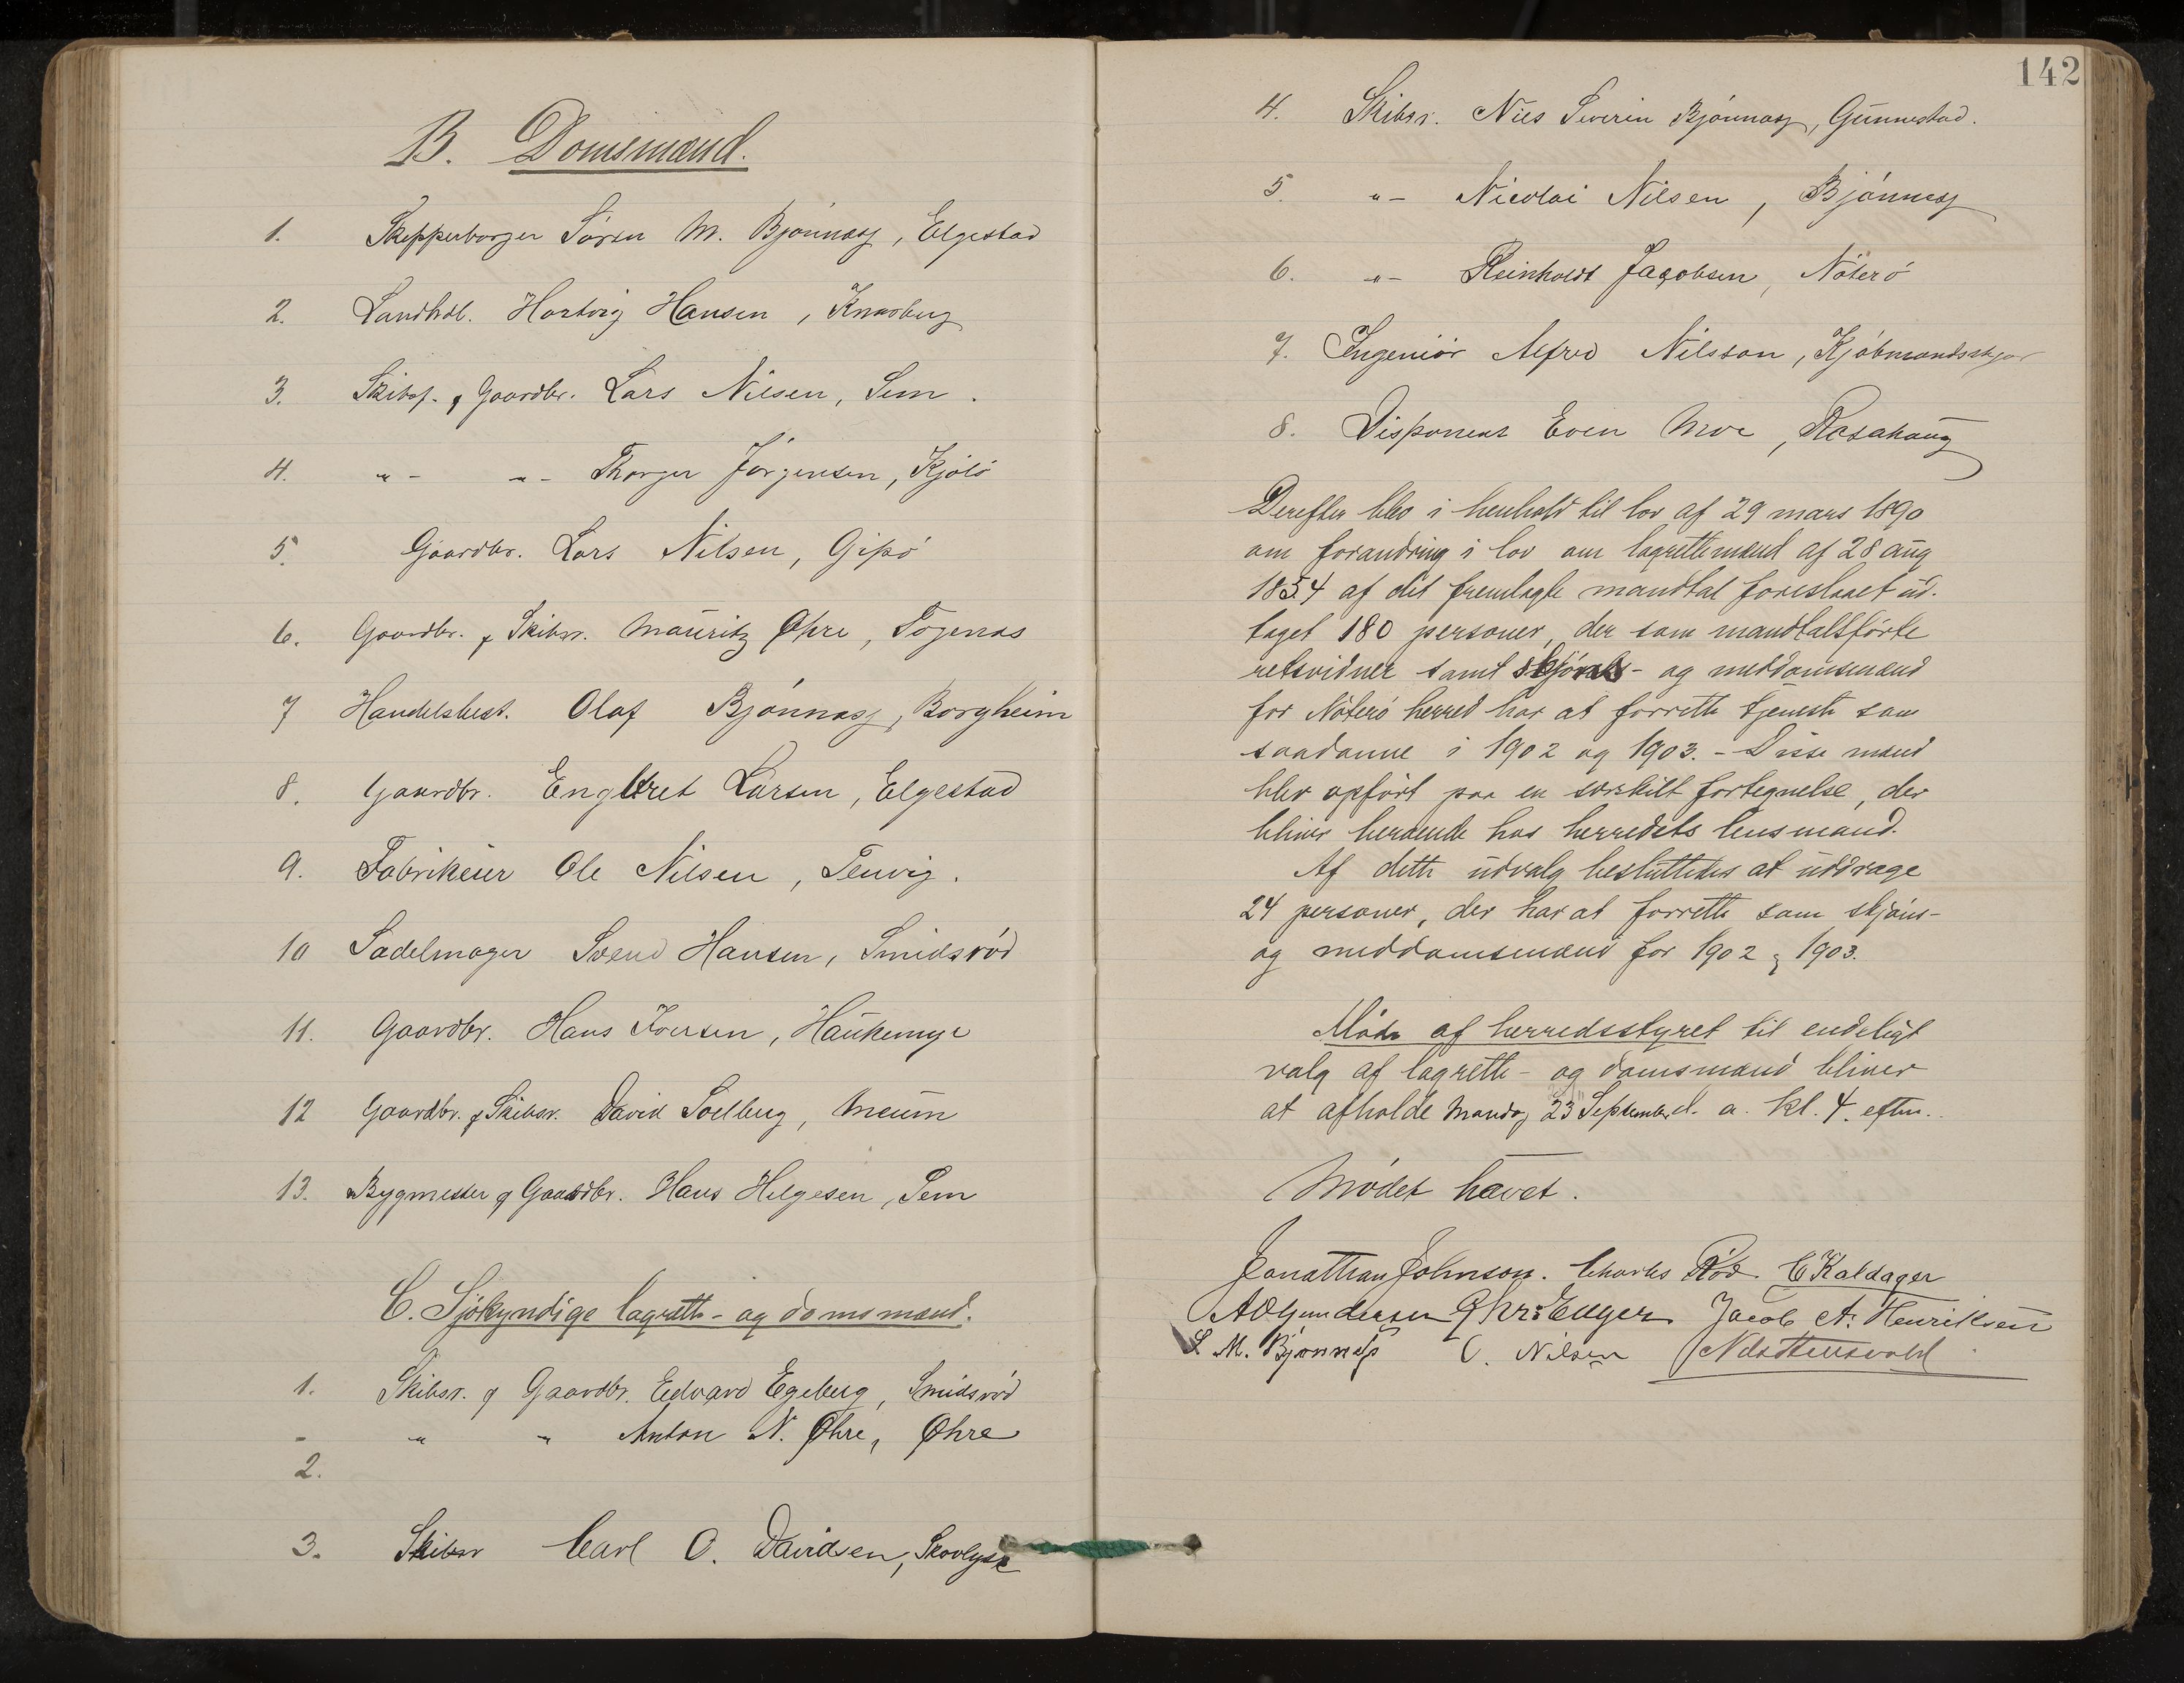 B. Domsmænd.
1. Skipperborger Søren M. Bjönnæss, Elgestad
2. Landhdl. Hartvig Hansen, Knarberg
3. Skibsf. & Gaardbr. Lars Nilsen, Sem.
4. " - " - Thorger Jörgensen, Kjölö
5. Gaardbr. Lars Nilsen, Gipö
6. Gaardbr. & Skibsr. Mauritz Øhre, Togenæs
7 Handelsbest. Olaf Bjönnæss, Borgheim
8. Gaardbr. Engebret Larsen, Elgestad
9. Fabrikeier Ole Nilsen, Tenvig.
10 Sadelmager Svend Hansen, Smidsröd
11. Gaardbr. Hans Iversen, Haukemyr
12 Gaardbr. & Skibsr. David Soelberg, Meum
13. Bygmester & Gaardbr. Hans Helgesen, Sem
C. Sjökyndige lagrette- og domsmænd.
1. Skibsr. & Gaardbr. Edvard Egeberg, Smidsröd
- " " Anton N. Øhre, Øhre
2.
3. Skibsr Carl O. Davidsen, Skovlyst
142
4. Skibsr. Nils Severin Bjönnæss, Gunnestad.
5. " - Nicolai Nilsen, Bjönness
6. " - Reinholdt Jacobsen, Nöterö
7. Ingeniör Alfred Nilsson, Kjöbmandsskjær
8. Disponent Even Moe, Rosahaug
Derefter blev i henhold til lov af 29 mars 1890
om forandring i lov om lagrettemænd af 28 aug
1854 af det fremlagte mandtal foreslaaet ud-
taget 180 personer, der som mandtalsförte
retsvidner samt skjöns- og meddomsmænd
for Nöterö herred har at forrette tjeneste som
saadanne i 1902 og 1903. - Disse mænd
blev opfört paa en særskilt fortegnelse, der
bliver beroende hos herredets lensmand.
Af dette udvalg besluttedes at uddrage
24 personer, der har at forrette som skjöns-
og meddomsmænd for 1902 & 1903.
Möde af herredsstyret til endeligt
valg af lagrette- og domsmænd bliver
at afholde Mandag 23 September d. a. kl. 4. efterm.
Mödet hævet.
Jonathan Johnson. Charles Röd. C Kaldager
A O Gundersen Chr: Enger Jacob A. Henriksen
S. M. Bjönness C. Nilsen